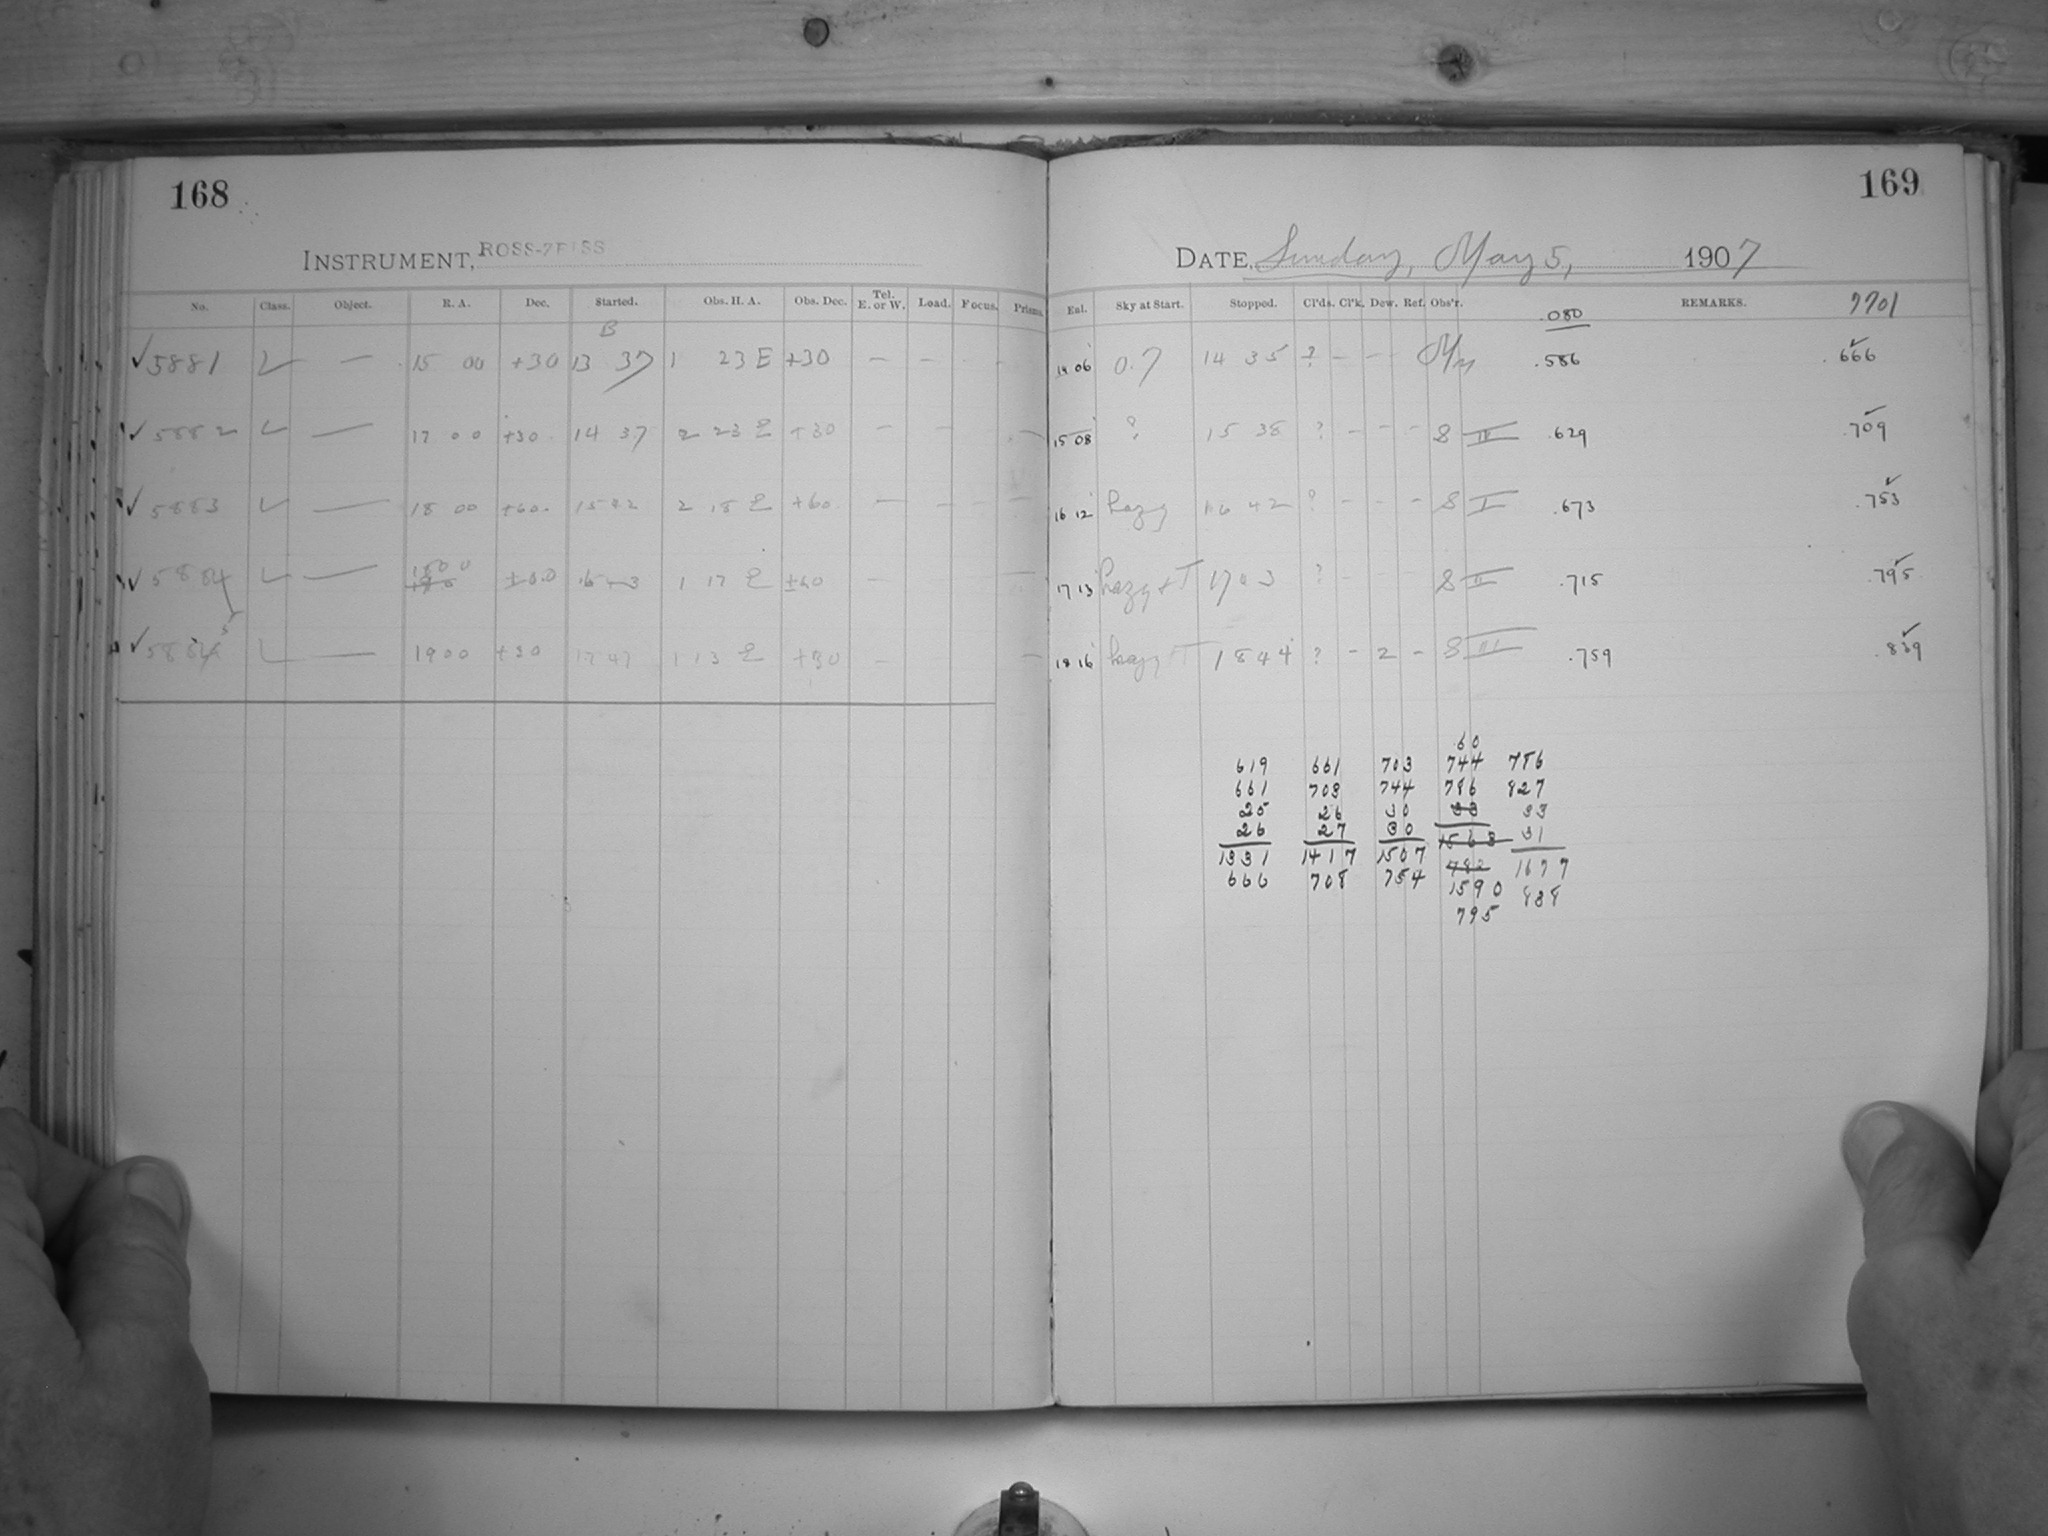 168
INSTRUMENT, ROSS-ZEISS
No. Class. Object. R. A. Dec. Started. Obs. H. A. Obs. Dec. Tel. E. or W. Load. Focus. Prisms.
B
✓5881 L — 15 00 +30 13 37 1 23 E +30 — — - -
✓5882 L — 17 00 +30 14 37 2 23 E +30 — —
✓5883 L — 18 00 +60 15 42 2 18 E +60 — — —
✓5884 L — 18 00 +60 16 43 1 17 E +60 — —
✓5885 L — 19 00 +30 17 47 1 13 E +30 — —
169
DATE, Sunday, May 5, 1907
Exl. Sky at Start. Stopped. Cl'ds. Cl'k. Dew. Ref. Obs'r. REMARKS. 7701
.080
14 06 0.7 14 35 ? — — - .586 .666
15 08 ? 15 38 ? - - - S III .629 .709
16 12 hazy 16 42 ? - - - S I .673 .753
17 13 hazy + T ? - - S II .715 .795
18 16 hazy T 18 44 ? - 2 - S III .759 .839
60
619 661 703 744 786
661 703 744 786 827
25 26 30 33 33
26 27 30 1563 31
1331 1417 1507 782 1677
666 708 754 1590 838
795